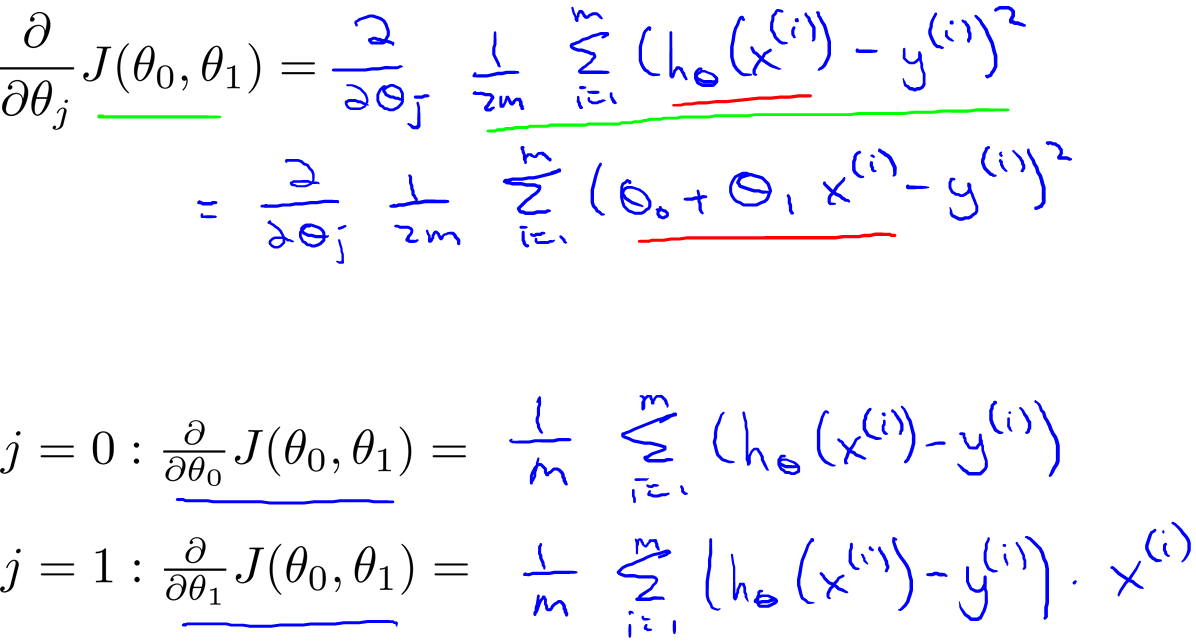 ∂/∂θ_j J(θ₀, θ₁) = ∂/∂θ_j 1/2m Σ_{i=1}^{m} (h_θ(x^{(i)}) − y^{(i)})²
= ∂/∂θ_j 1/2m Σ_{i=1}^{m} (θ₀ + θ₁ x^{(i)} − y^{(i)})²
j = 0 : ∂/∂θ₀ J(θ₀, θ₁) = 1/m Σ_{i=1}^{m} (h_θ(x^{(i)}) − y^{(i)})
j = 1 : ∂/∂θ₁ J(θ₀, θ₁) = 1/m Σ_{i=1}^{m} (h_θ(x^{(i)}) − y^{(i)}) · x^{(i)}